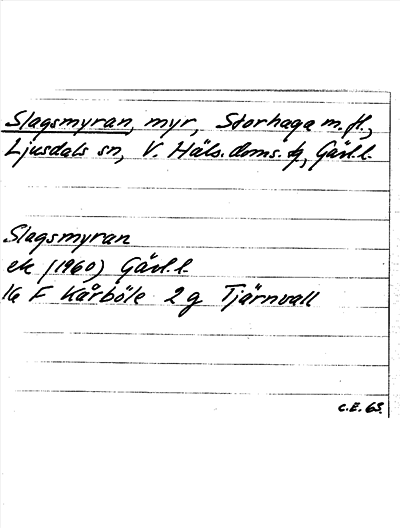 Slagsmyran, myr, Storhaga m.fl.,
Ljusdals sn, V. Häls. doms. tg, Gävl.l.
Slagsmyran
ek (1960) Gävl.l.
16 F Kårböle 2 g Tjärnvall
C.E. 63.